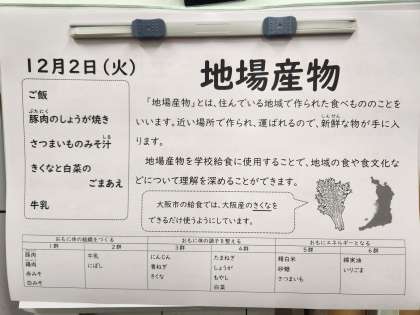 12月2日(火)
ご飯
豚肉のしょうが焼き
ぶたにく
さつまいものみそ汁
しる
きくなと白菜の
ごまあえ
牛乳
地場産物
「地場産物」とは、住んでいる地域で作られた食べもののことを
いいます。近い場所で作られ、運ばれるので、新鮮な物が手に入
しんせん
ります。
地場産物を学校給食に使用することで、地域の食や食文化な
どについて理解を深めることができます。
大阪市の給食では、大阪産のきくなを
できるだけ使うようにしています。
おもに体の組織をつくる
おもに体の調子を整える
おもにエネルギーとなる
1群 2群 3群 4群 5群 6群
豚肉 牛乳 にんじん たまねぎ 精白米 綿実油
鶏肉 にぼし 青ねぎ しょうが 砂糖 いりごま
赤みそ きくな もやし さつまいも
白みそ 白菜